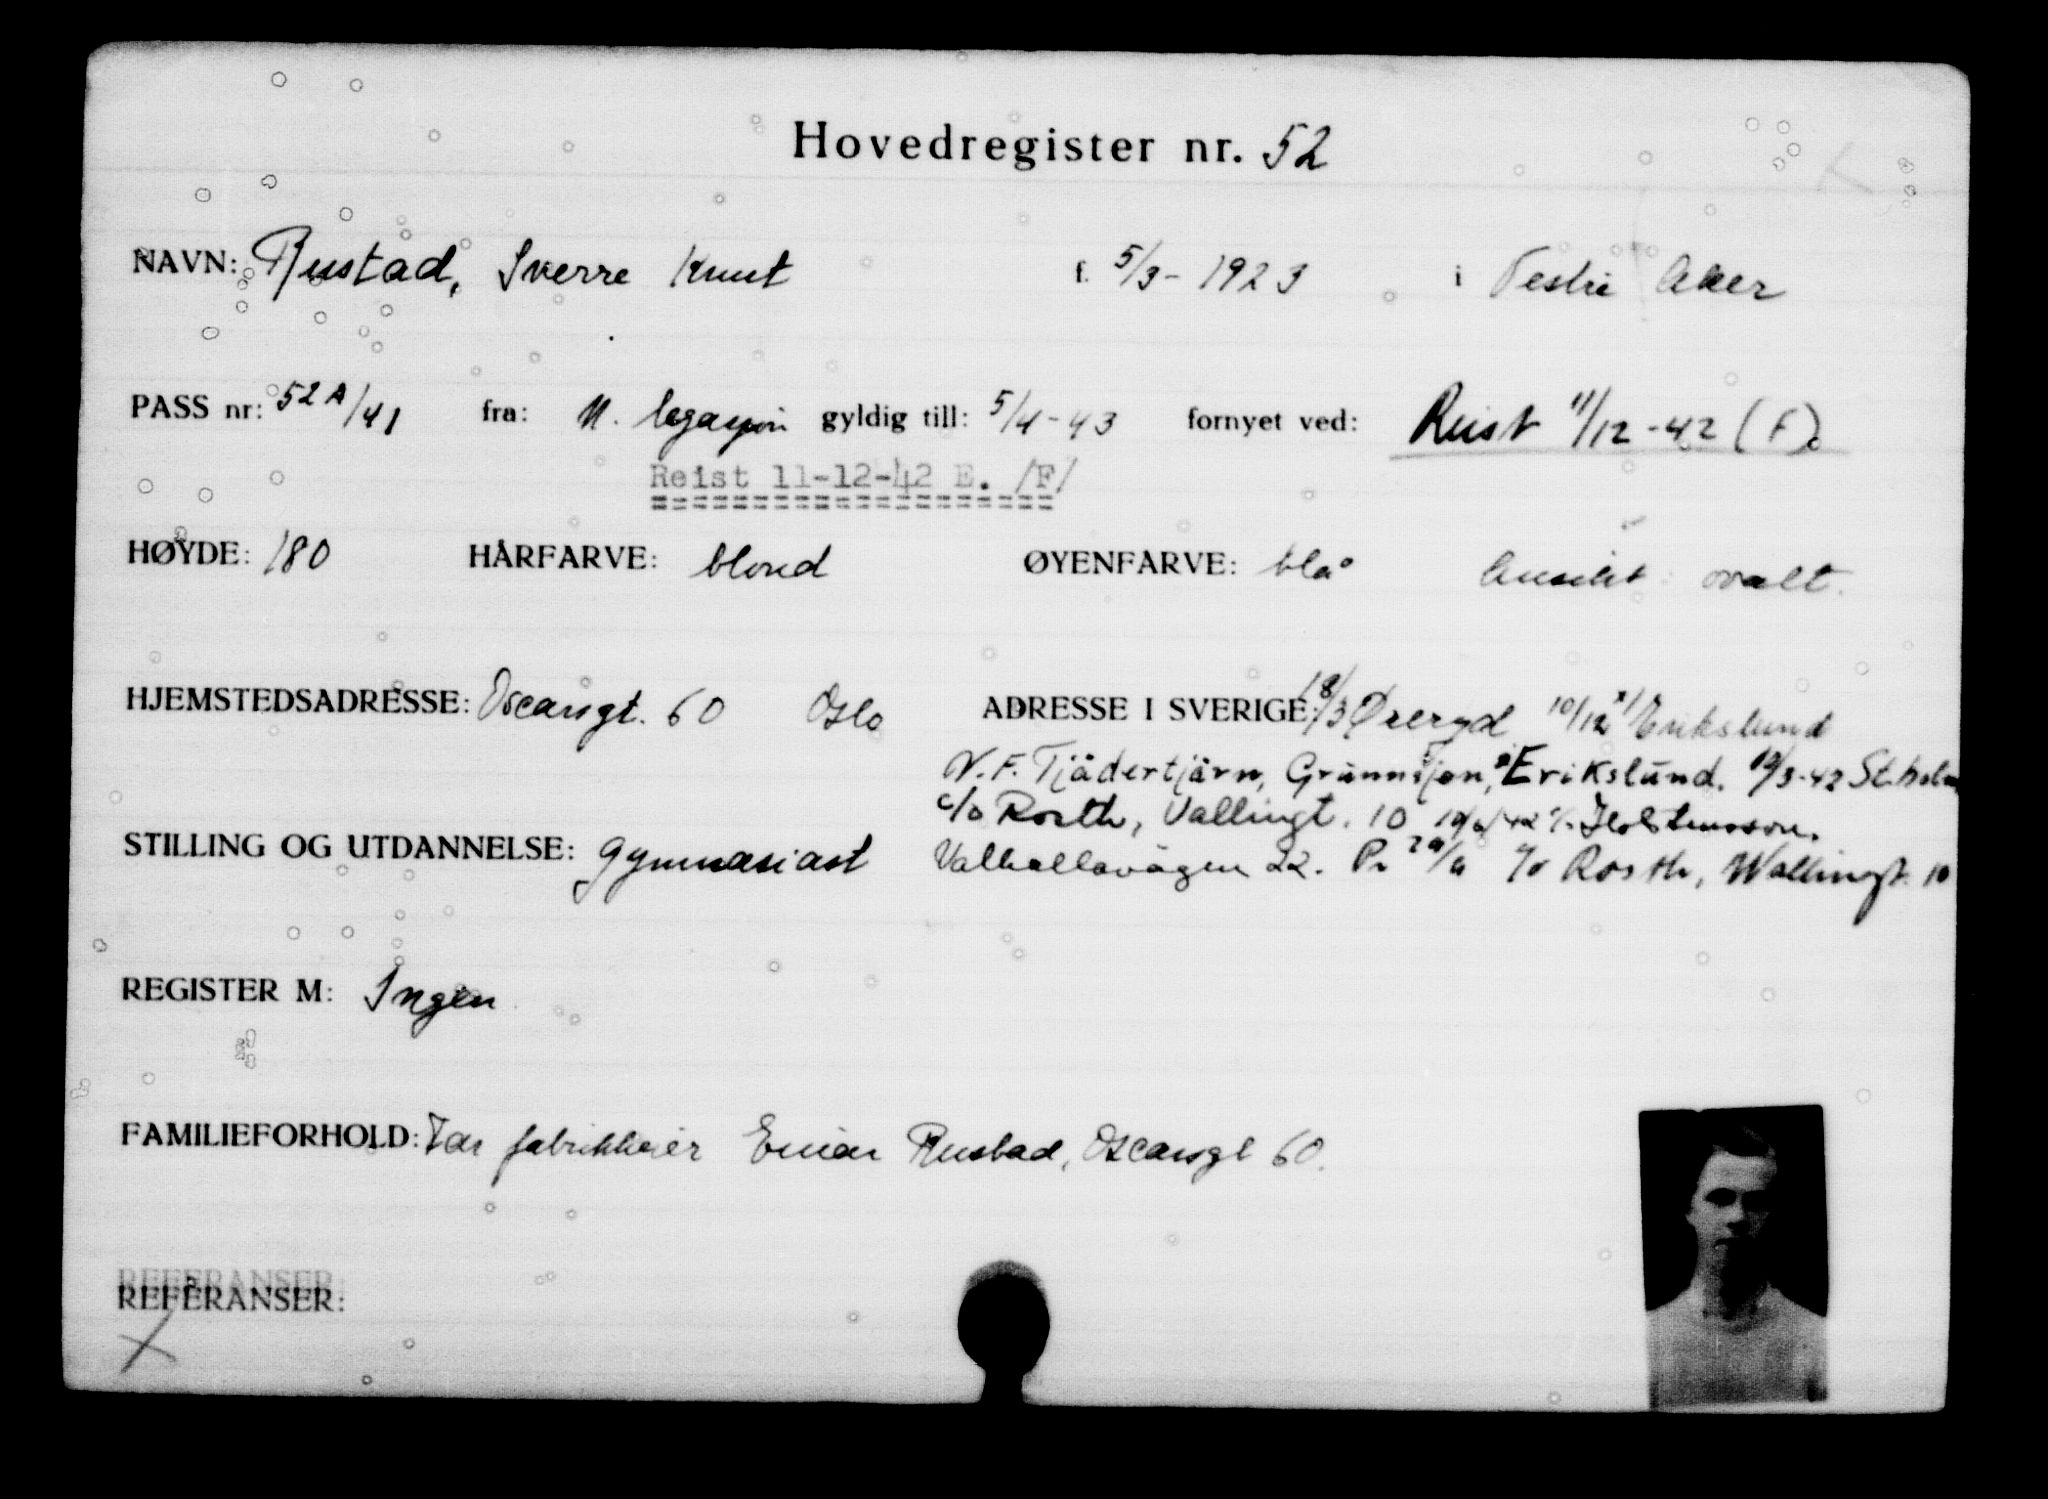 Hovedregister nr. 52
NAVN: Rustad, Sverre Knut f. 5/3- 1923 i Vestre Aker
PASS nr: 52A/41 fra: N. legasjon gyldig till: 5/4-43 fornyet ved: Reist 11/12-42 (F).
Reist 11-12-42 E. /F/
HØYDE: 180 HÅRFARVE: blond ØYENFARVE: blå Ansikt: ovalt.
HJEMSTEDSADRESSE: Oscarsgt. 60 Oslo ADRESSE I SVERIGE: 18/3 Øreryd 10/12 Erikslund
V.F. Tjädertjärn, Grünnsjön, Erikslund. 19/3-42 St.holm
c/o Rosth, Vallingt. 10 19/6/42 c/o
STILLING OG UTDANNELSE: gymnasiast Valhallavägen 22. c/o Rosth, Wallingt. 10
REGISTER M: Ingen
FAMILIEFORHOLD: Far fabrikkeier Einar Rustad, Oscarsgt 60.
REFERANSER:
REFERANSER: